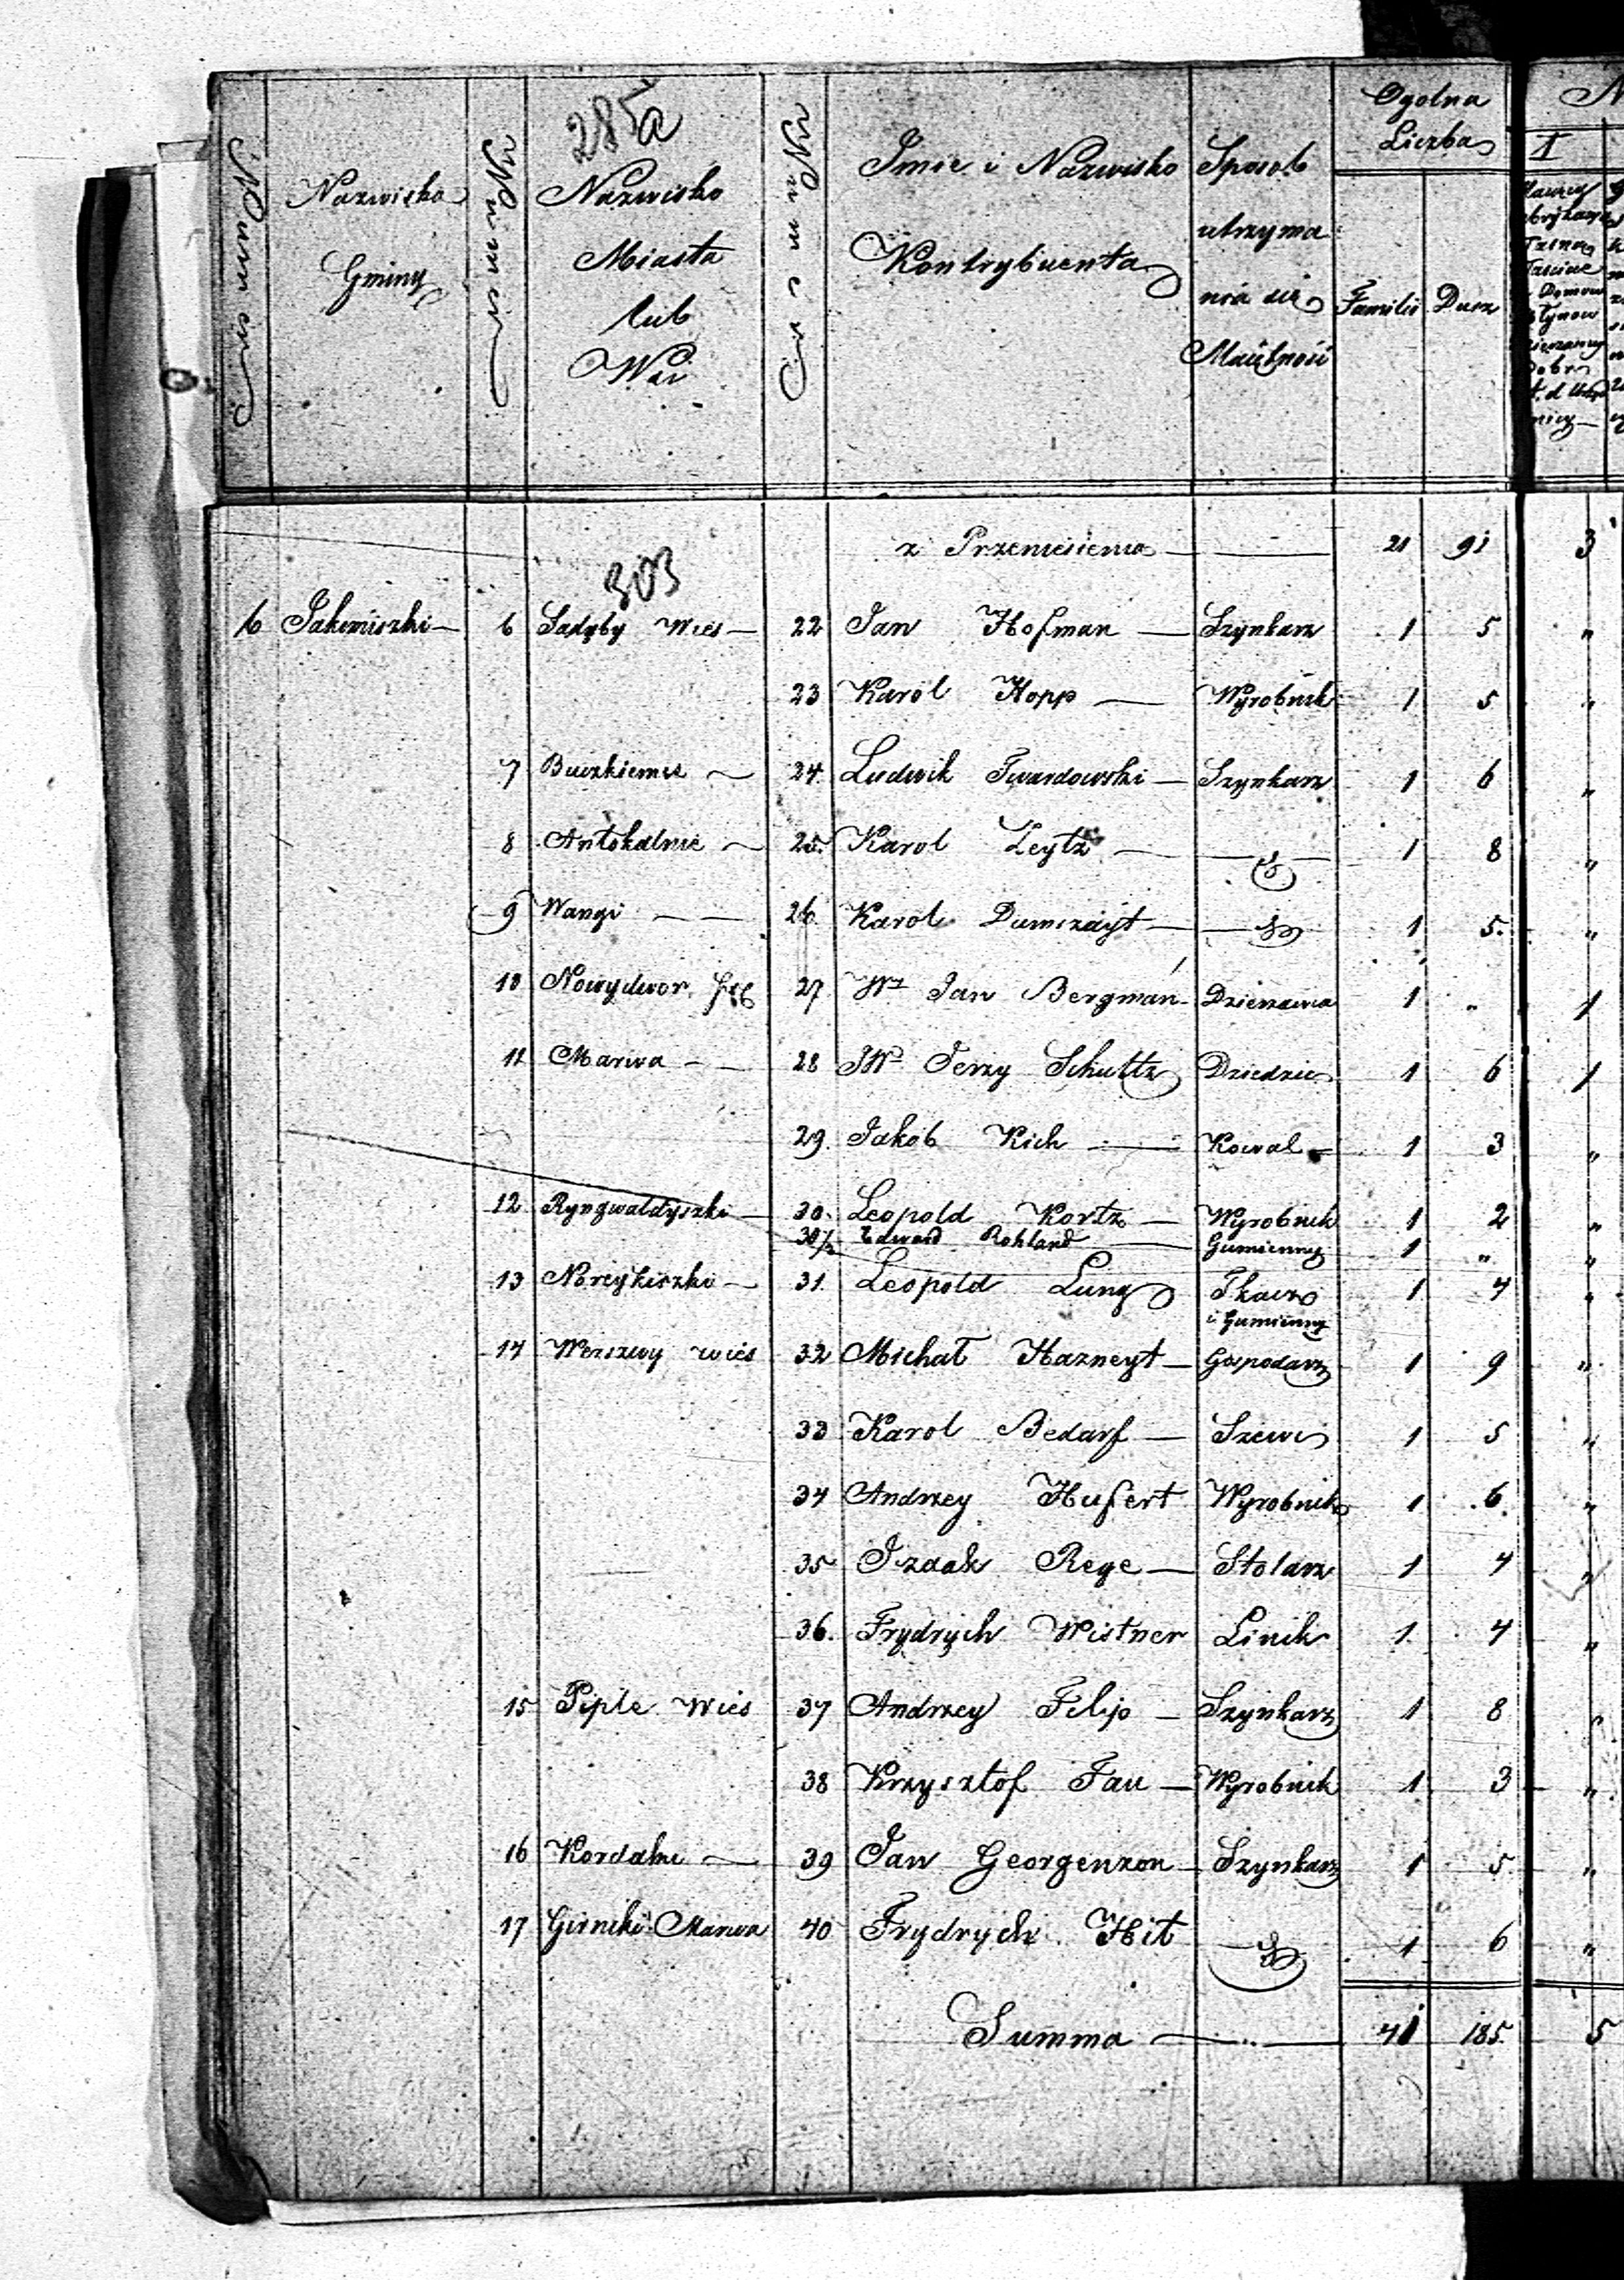 285a
Numer
Nazwisko Gminy
Numer
Nazwisko Miasta lub Wsi
Numer
Imie i Nazwisko Kontrybuenta
Sposob utrzyma nia sie Maiętność
Ogolna Liczba
Familii
Dusz
I
z Przeniesienia — 21 91 3
303
6 Jakimiszki — 6 Sadyby Wies — 22 Jan Hofman — Szynkarz 1 5 "
23 Karol Hopp — Wyrobnik 1 5 "
7 Buczkiemie — 24. Ludwik Twardowski — Szynkarz 1 6 "
8 Antokalnie — 25. Karol Leytz — 1 8 "
9 Wangi — — 26 Karol Dumszayt — 1 5. "
10 Nowydwor 27 Wz Jan Bergman Dzierzawca 1 " 1
11 Marwa — 28 JWP Jerzy Schultz Dziedzic 1 6 1
29. Jakób Kich — Kowal 1 3 "
12 Ryngwaldyszki — 30. Leopold Kortz — Wyrobnik 1 2 "
30½ Edward Rohland — Gumienny 1 " "
13 Noreykiszki — 31. Leopold Lung Tkacz 1 4 "
i Gumienny
14 Werszwy wies 32 Michał Hazneyt — Gospodarz 1 9 "
33 Karol Bedarf — Szewc 1 5 "
34 Andrzey Hufert Wyrobnik 1 6. "
35 Izaak Rege — Stolarz 1 4 "
36. Frydrych Wistner Linik 1. 4 "
15 Piple Wies 37 Andrzey Filip — Szynkarz 1 8 "
38 Krzysztof Fau — Wyrobnik 1 3 "
16 Kordalne — 39 Jan Georgenzon — Szynkarz 1 5 "
17 Girniki Marwa 40 Frydrych Hit 1 6 "
Summa — 41 185. 5